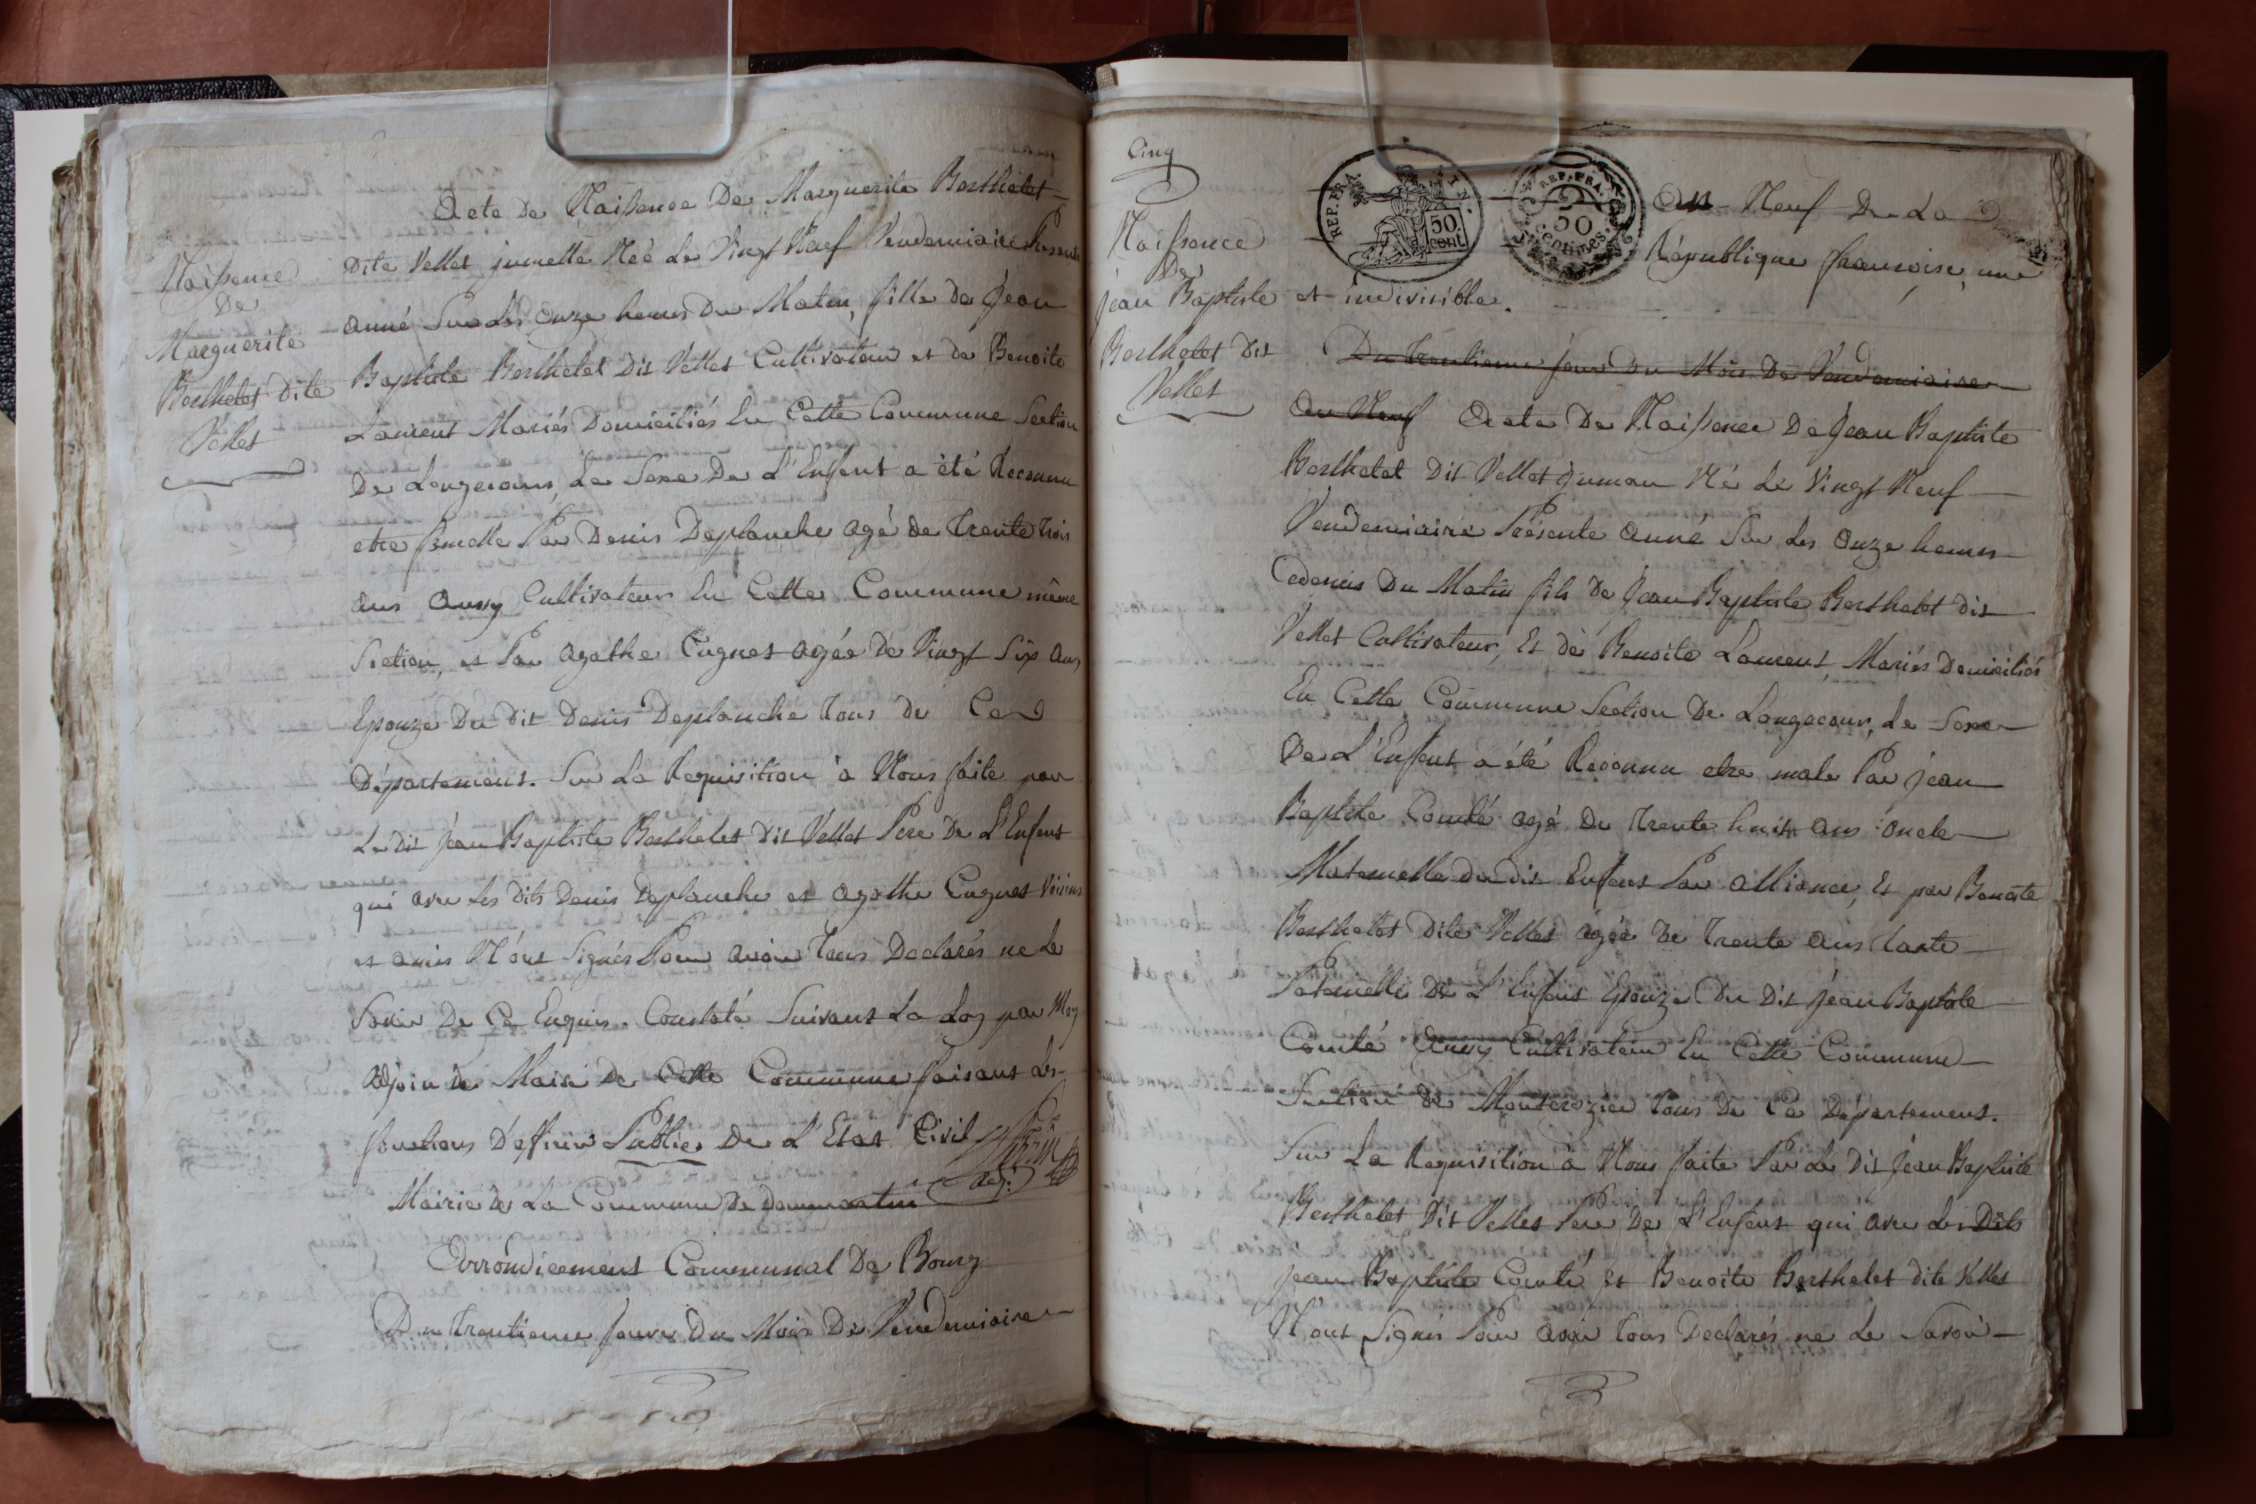 Naissence
De
Marguerite
Berthelet dite
Vellet
Acte De Naissence De Marguerite Berthelet
Dite Vellet jumelle Née Le Vingt Neuf Vendemiaire Presente
anné Sur Les Onze heures Du Matin, fille De Jean
Baptiste Berthelet Dit Vellet Cultivateur et De Benoite
Laurent Mariés Domiciliés En Cette Commune Section
De Longecour, Le Sexe De L'Enfent a été Reconnu
etre femelle Par Denis Deplanche agé de Trente trois
ans aussy Cultivateur En Cette Commune même
Section, et Par Agathe Cugnet agée De Vingt Six ans
Epouze Du Dit Denis Deplanche Tous De Ce
Département. Sur La Requisition à Nous faite par
Le Dit Jean Baptiste Berthelet Dit Vellet Pere De L'Enfent
qui avec Les Dits Denis Deplanche et Agathe Cugnet Voisins
et amis N'ont Signés Pour avoir Tous Declarés ne Le
Savoir De Ce Enquis. Constaté Suivant La Loy par Moy
adjoin De Maire De Cette Commune faisant Les
fonctions D'officier Public De L'Etat Civil
adj.
Mairie De La Commune De Dommartin
Arrondicement Communal De Bourg
Du Trentieme Jour Du Mois De Vendemiaire
Cinq
Naissence
De
Jean Baptiste
Berthelet Dit
Vellet
REP. FRA.
50
cent
REP. FRA.
50
centimes
An Neuf De La
République francoise, une
et indivisible.
Du Trentieme Jour Du Mois De Vendemiaire
An Neuf Acte De Naissence De Jean Baptiste
Berthelet Dit Vellet Jumau Né Le Vingt Neuf
Vendemiaire Présente anné Sur Les Onze heures
Du Matin fils De Jean Baptiste Berthelet Dit
Vellet Cultivateur, Et De Benoite Laurent, Mariés Domiciliés
En Cette Commune Section De Longecour, Le Sexe
De L'Enfent a été Reconnu etre male Par Jean
Baptiste Comté agé De Trente huit ans oncle
Maternelle Du dit Enfent Par alliance, Et par Benoite
Berthelet Dite Vellet agée De Trente ans tante
Paternelle De L'Enfent Epouze Du Dit Jean Baptiste
Comté Aussy Cultivateur En Cette Commune
Section De Montcrozier Tous De Ce Département.
Sur La Requisition à Nous faite Par Le Dit Jean Baptiste
Berthelet Dit Vellet Pere De L'Enfent qui avec Les Dits
Jean Baptiste Comté Et Benoite Berthelet dite Vellet
N'ont Signés Pour avoir Tous Declarés ne Le Savoir